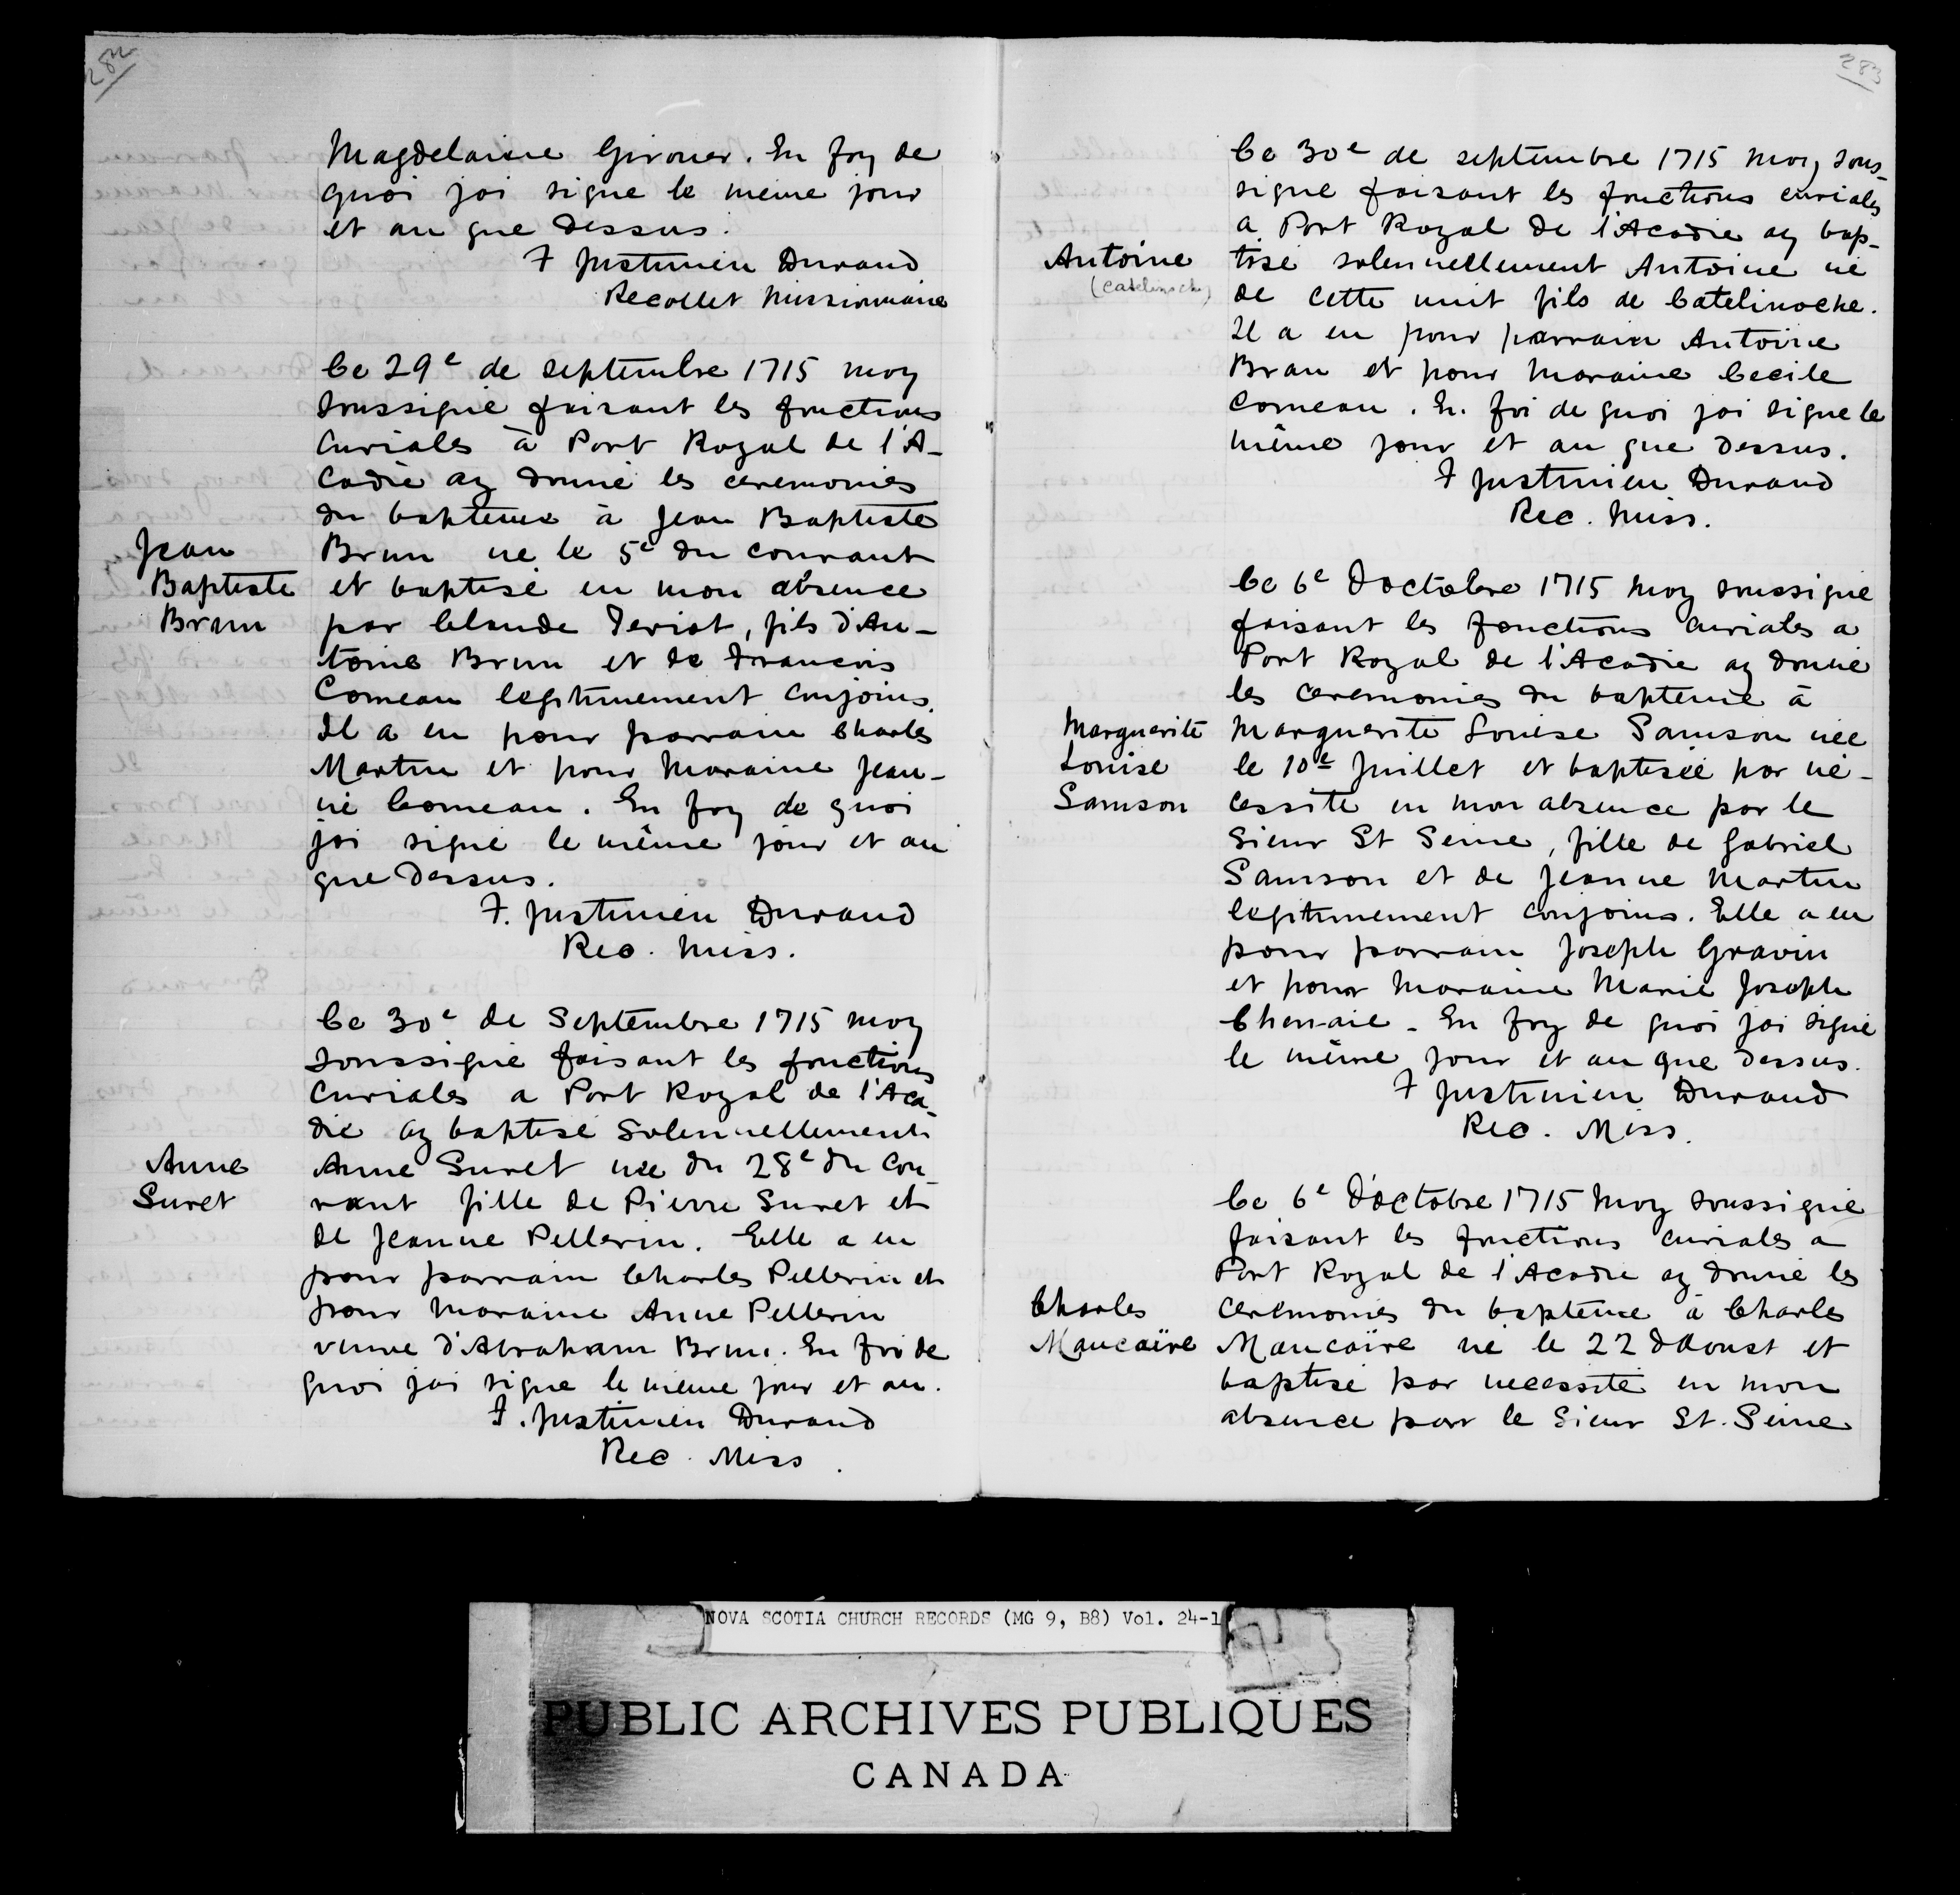 282
Magdelaine Girouer. En foy de
quoi jai signe le meme jour
et an que dessus.
F Justinien Durand
Recollet Missionnaire
Ce 29e de septembre 1715 moy
soussigné faisant les fonctions
curiales à Port Royal de l'A-
cadie ay donné les ceremonies
du bapteme à Jean Baptiste
Jean
Baptiste
Brun
Brun né le 5e du courant
et baptisé en mon absence
par Claude Teriot, fils d'An-
toine Brun et de Francois
Comeau legitimement conjoins.
Il a eu pour parrain Charles
Martin et pour maraine Jean-
ne Comeau. En foy de quoi
jai signé le même jour et an
que dessus.
F. Justinien Durand
Rec. Miss.
Ce 30e de Septembre 1715 moy
soussigné faisant les fonctions
curiales a Port Royal de l'Aca-
die ay baptisé solennellement
Anne
Suret
Anne Suret née du 28e du cou-
rant fille de Pierre Suret et
de Jeanne Pellerin. Elle a eu
pour parrain Charles Pellerin et
pour maraine Anne Pellerin
veuve d'Abraham Brun. En foi de
quoi jai signe le meme jour et an.
F. Justinien Durand
Rec. Miss.
283
Ce 30e de septembre 1715 moy sous-
signe faisant les fonctions curiales
a Port Royal de l'Acadie ay bap-
Antoine
(Catelinoche)
tisé solennellement Antoine né
de cette nuit fils de Catelinoche.
Il a eu pour parrain Antoine
Brau et pour maraine Cecile
Comeau. En foi de quoi jai signe le
même jour et an que dessus.
F Justinien Durand
Rec. Miss.
Ce 6e doctobre 1715 moy soussigne
faisant les fonctions curiales a
Port Royal de l'Acadie ay donné
les ceremonies du bapteme à
Marguerite
Louise
Samson
Marguerite Louise Samson née
le 10e Juillet et baptisée par né-
cessité en mon absence par le
Sieur St Seine, fille de Gabriel
Samson et de Jeanne Martin
legitimement conjoins. Elle a eu
pour parrain Joseph Gravin
et pour maraine Marie Joseph
Chenaie. En foy de quoi jai signé
le même jour et an que dessus.
F Justinien Durand
Rec. Miss.
Ce 6e d'octobre 1715 moy soussigné
faisant les fonctions curiales a
Port Royal de l'Acadie ay donné les
Charles
Maucaïre
ceremonies du bapteme à Charles
Maucaïre né le 22 dAoust et
baptisé par necessité en mon
absence par le Sieur St. Seine
NOVA SCOTIA CHURCH RECORDS (MG 9, B8) Vol. 24-1
PUBLIC ARCHIVES PUBLIQUES
CANADA